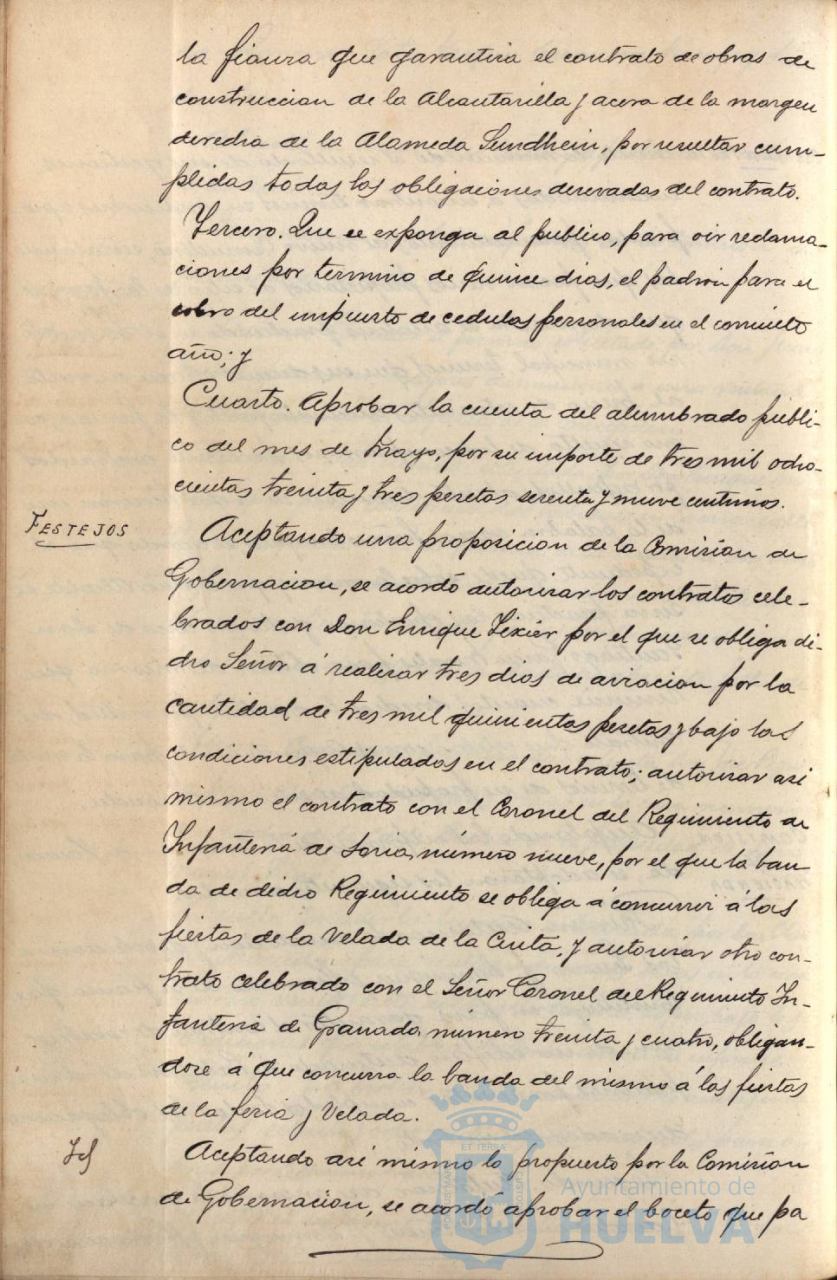 la fianza que garantiza el contrato de obras de
construccion de la Alcantarilla y acera de la margen
derecha de la Alameda Sundhein, por resultar cum-
plidas todas las obligaciones derivadas del contrato.
Tercero. Que se exponga al publico, para oir reclama-
ciones por termino de quince dias, el padrón para el
cobro del impuesto de cedulas personales en el corriente
año; y
Cuarto. Aprobar la cuenta del alumbrado públi-
co del mes de Mayo, por su importe de tres mil ocho-
cientas treinta y tres pesetas setenta y nueve centimos.
FESTEJOS
Aceptando una proposicion de la Comision de
Gobernacion, se acordó autorizar los contratos cele-
brados con Don Enrique Tixier por el que se obliga di-
cho Señor á realizar tres dias de aviacion por la
cantidad de tres mil quinientas pesetas y bajo las
condiciones estipuladas en el contrato; autorizar asi
mismo el contrato con el Coronel del Regimiento de
Infanteria de Soria, número nueve, por el que la ban
da de dicho Regimiento se obliga á concurrir á las
fiestas de la Velada de la Cinta, y autorizar otro con-
trato celebrado con el Señor Coronel del Regimiento In-
fanteria de Granada, número treinta y cuatro, obligan-
dose á que concurra la banda del mismo á las fiestas
de la feria y Velada.
Id
Aceptando asi mismo lo propuesto por la Comision
de Gobernacion, se acordó aprobar el boceto que pa
Ayuntamiento de
HUELVA